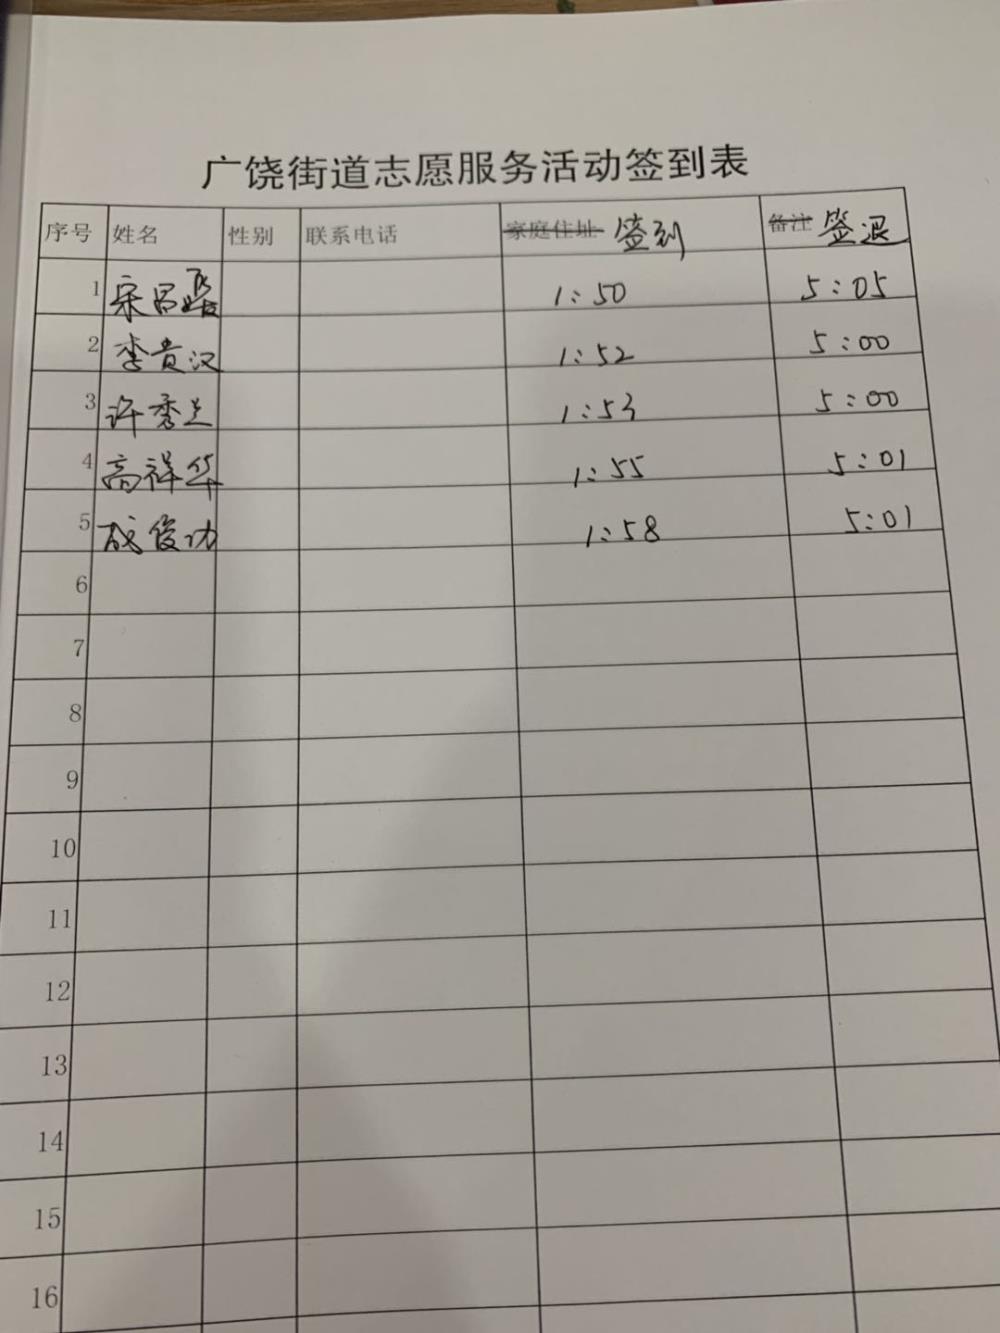 广饶街道志愿服务活动签到表
序号 姓名 性别 联系电话 家庭住址 签到 备注 签退
1 宋吕 1:50 5:05
2 李贵汉 1:52 5:00
3 许秀兰 1:53 5:00
4 高祥华 1:55 5:01
5 成俊功 1:58 5:01
6
7
8
9
10
11
12
13
14
15
16